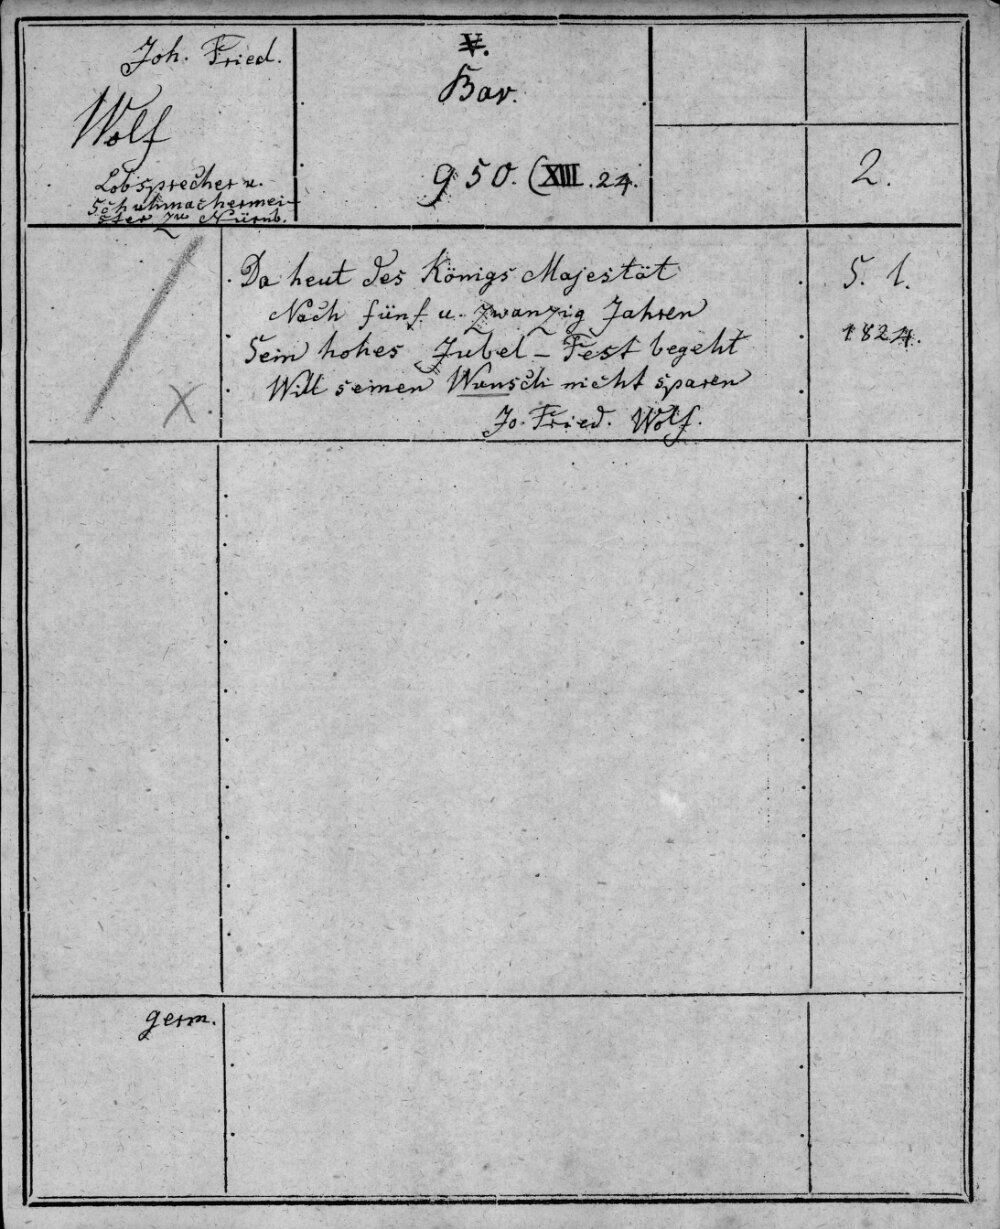 Joh. Fried.
Wolf
Lobsprecher u.
Schuhmachermei-
ster zu Nürnb.
V.
Bav.
950. (XIII.24.
2.
Da heut des Königs Majestät
Nach fünf u. zwanzig Jahren
Sein hohes Jubel-Fest begeht
Will seinen Wunsch nicht sparen
Jo. Fried. Wolf.
S. l.
1824.
X.
germ.